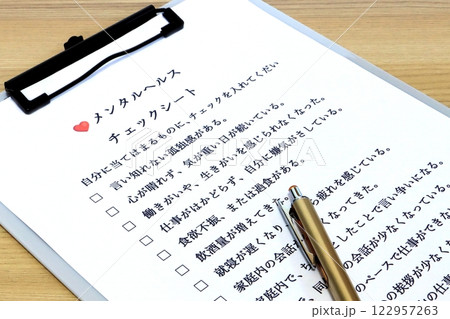 メンタルヘルス
チェックシート
自分に当てはまるものに、チェックを入れてくださ
言い知れない孤独感がある。
心が晴れず、気が重い日が続いている。
働きがいや、生きがいを感じられなくなった。
仕事がはかどらず、自分に嫌気がさしている。
食欲不振、または過食があ
飲酒量が増えてき 疲れを感じている。
就寝が遅くなり なってきた。
家庭内の会話 したことで言い争いになる。
家庭内で、ち の会話が少なくなっている。
同 のペースで仕事ができな
の挨拶が少なく
pixta
122957263